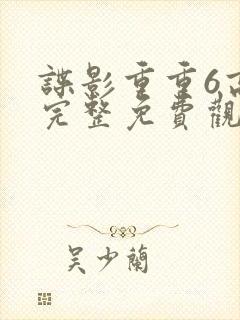 諜影重重6高
完整免費觀
吳少蘭